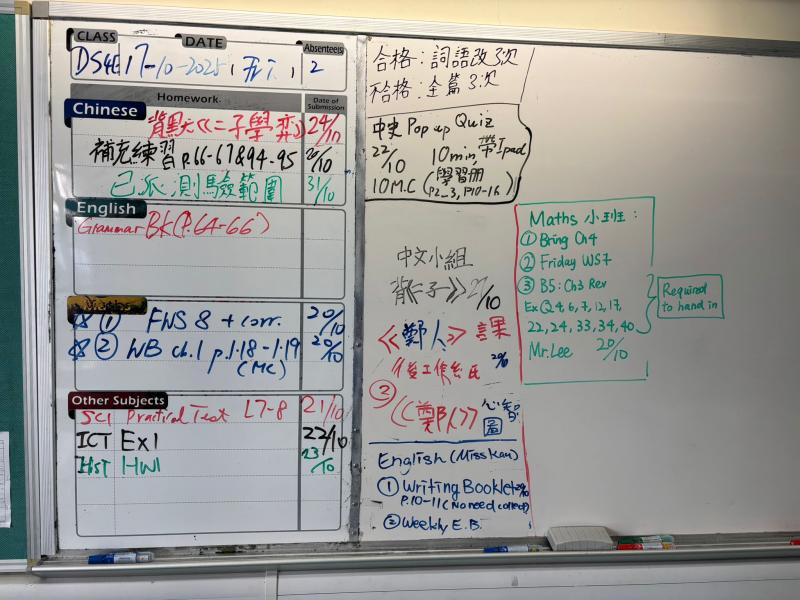 CLASS DATE Absentee(s)
DS4E 17-10-2025, 五, 2
Homework Date of Submission
Chinese
背默《二子學弈》 24/10
補充練習 P.66-67 & 94-95 20/10
已派測驗範圍 31/10
English
Grammar BK (P.64-66)
① FWS 8 + corr. 20/10
② WB ch.1 p.1.18-1.19 20/10
(MC)
Other Subjects
SCI Practical Test L7-8 21/10
ICT Ex1 22/10
Hist HW1 23/10
合格:詞語改3次
全篇3次
中史 Pop up Quiz
22/10 10min, 帶Ipad
10 M.C (學習冊
P2-3, P10-16)
中文小組
背《二子》 27/10
《鄭人》課
後工作紙 20/10
② 《鄭人》
English (Miss Kan)
① Writing Booklet 20/10
P.10-11 (No need correct)
② Weekly E.B.
Maths 小班:
① Bring Ch4
② Friday WS7
③ B5: Ch3 Rev
Ex Q 4, 6, 7, 12, 17,
22, 24, 33, 34, 40
Mr. Lee 20/10
Required
to hand in